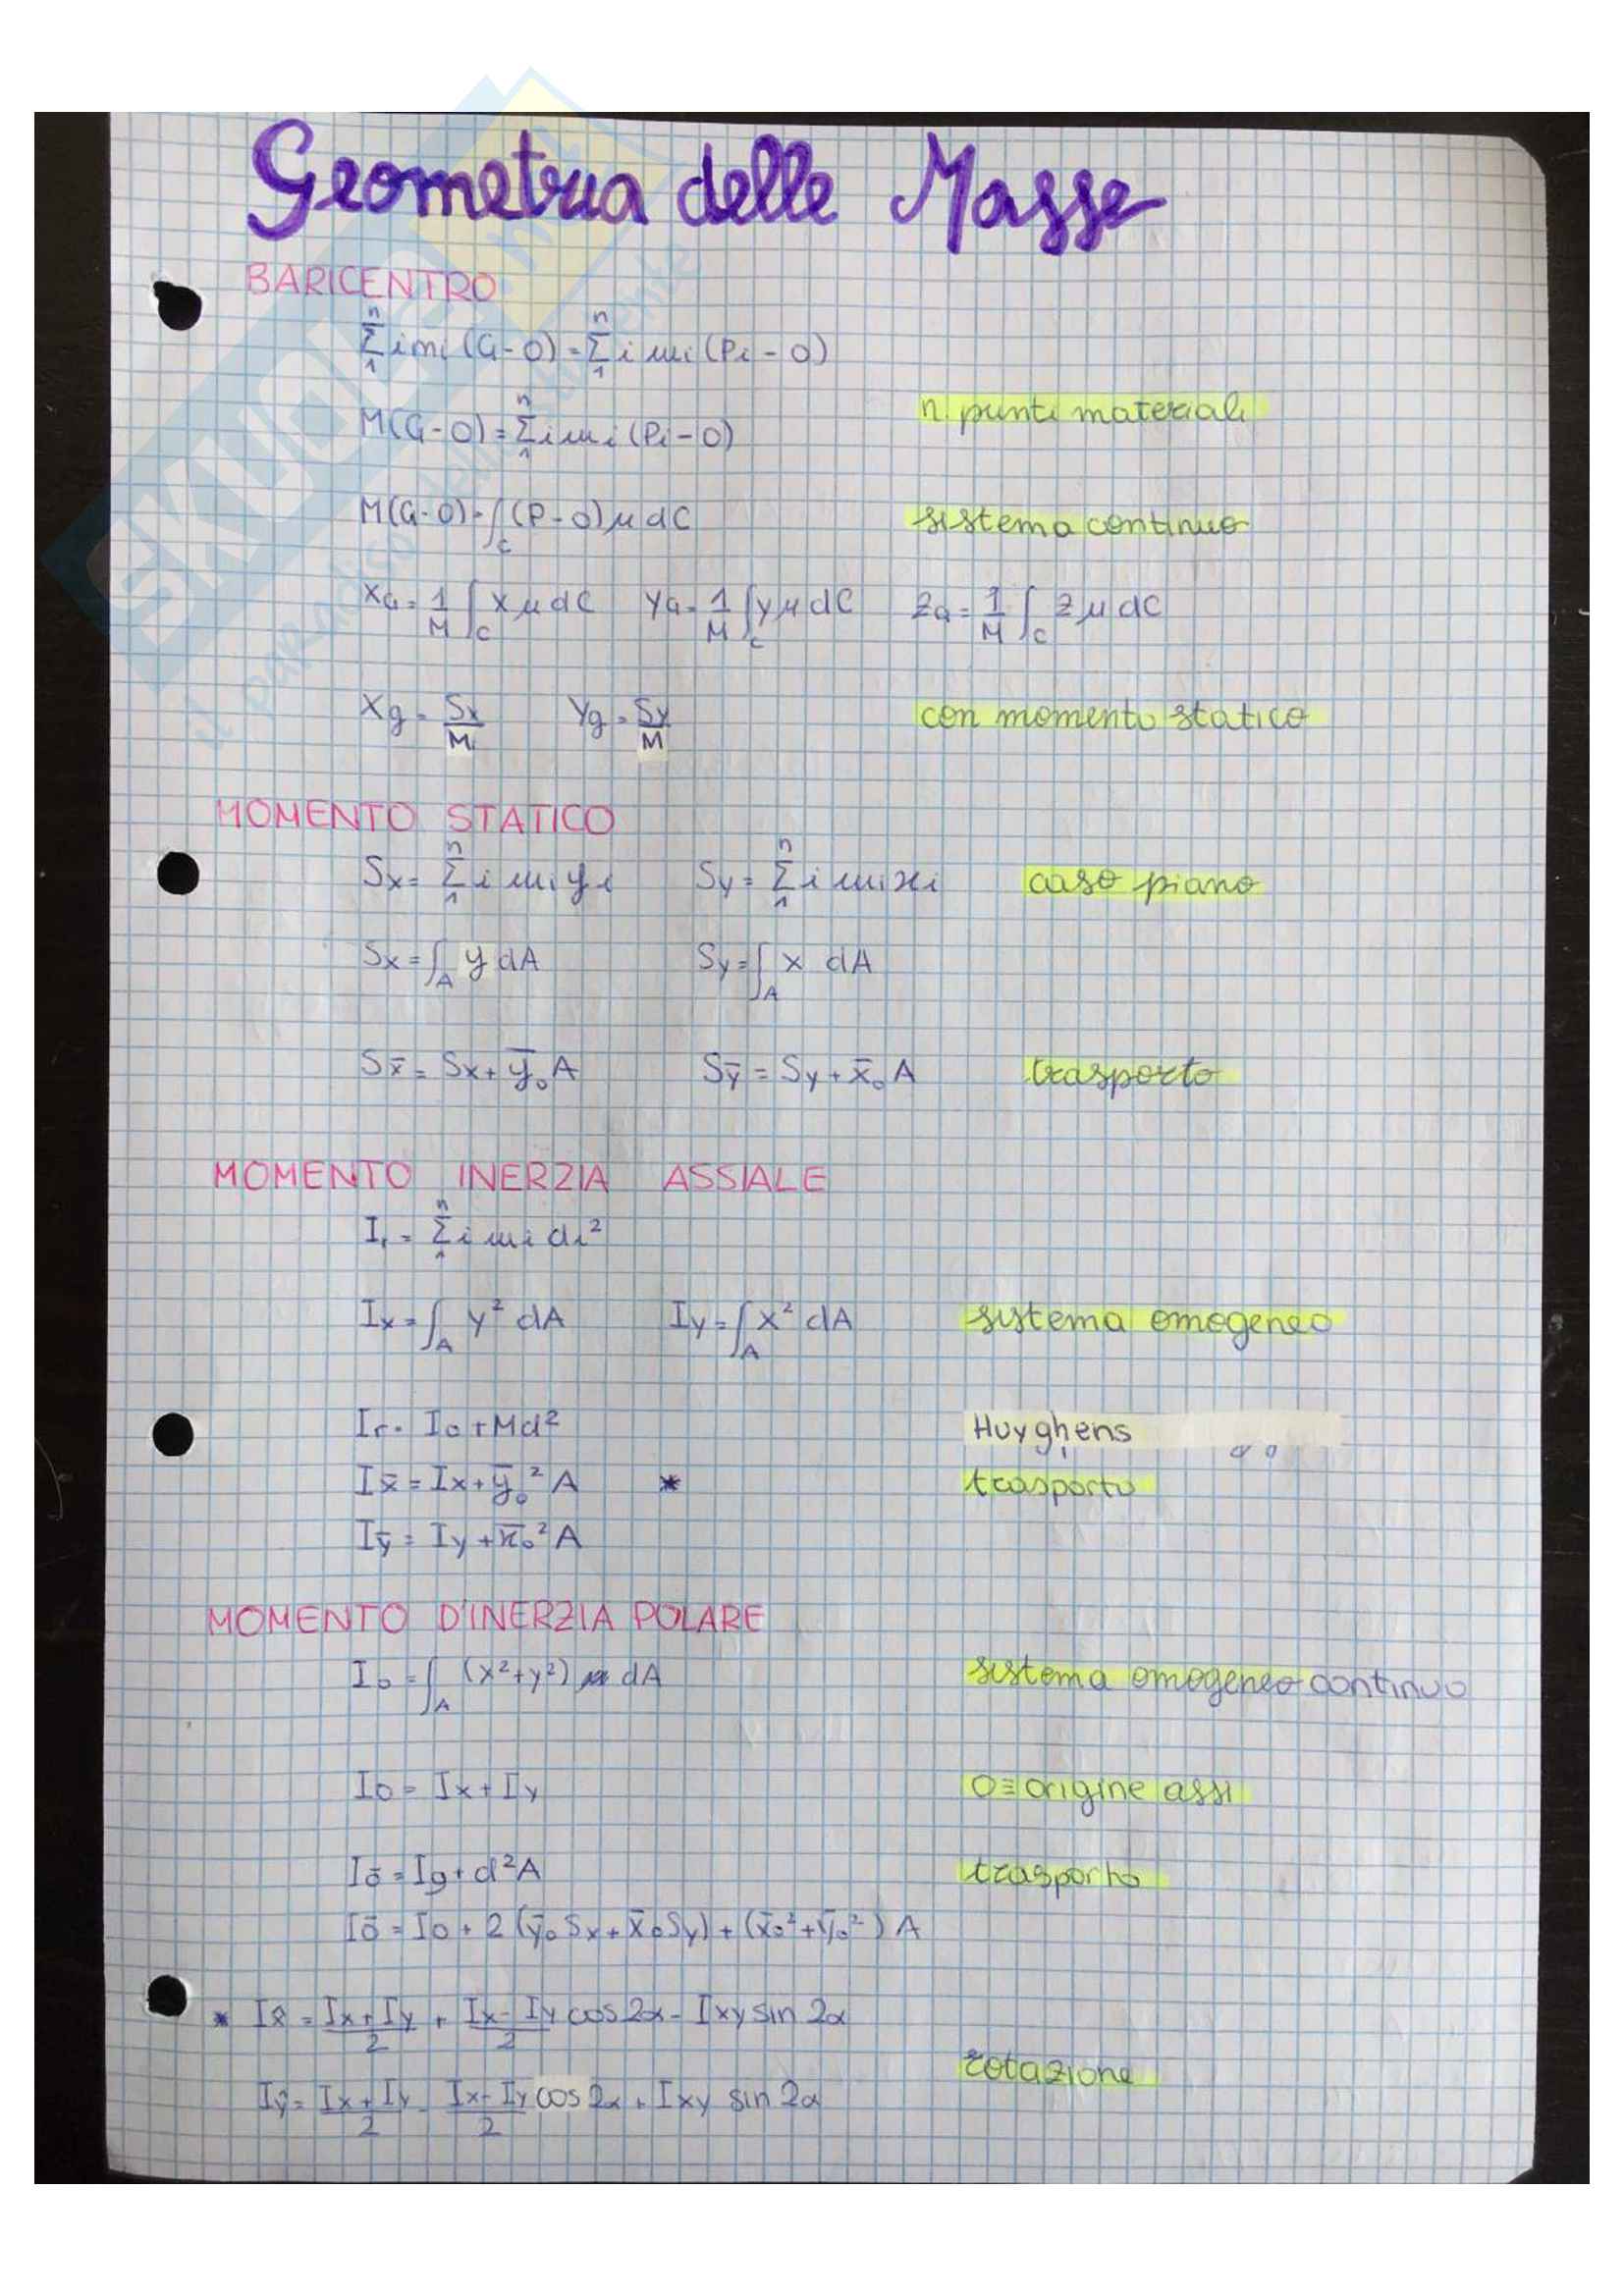 Geometria delle Masse
BARICENTRO
Σ₁ⁿ i mi (G-O) = Σ₁ⁿ i mi (Pi - O)
M(G-O) = Σ₁ⁿ i mi (Pi - O) n punti materiali
M(G-O) = ∫_C (P-O) μ dC sistema continuo
XG = 1/M ∫_C x μ dC YG = 1/M ∫_C y μ dC ZG = 1/M ∫_C z μ dC
Xg = Sx/M Yg = Sy/M con momento statico
MOMENTO STATICO
Sx = Σ₁ⁿ i mi yi Sy = Σ₁ⁿ i mi xi caso piano
Sx = ∫_A y dA Sy = ∫_A x dA
Sx̄ = Sx + ȳ₀ A Sȳ = Sy + x̄₀ A trasporto
MOMENTO INERZIA ASSIALE
Ir = Σ₁ⁿ i mi di²
Ix = ∫_A y² dA Iy = ∫_A x² dA sistema omogeneo
Ir = IG + Md² Huyghens
Ix̄ = Ix + ȳ₀² A * trasporto
Iȳ = Iy + x̄₀² A
MOMENTO D'INERZIA POLARE
Io = ∫_A (x²+y²) dA sistema omogeneo continuo
Io = Ix + Iy O≡origine assi
Iō = Ig + d²A trasporto
Iō = Io + 2 (ȳ₀ Sx + x̄₀ Sy) + (x̄₀² + ȳ₀²) A
* Ix̂ = (Ix+Iy)/2 + (Ix-Iy)/2 cos2α - Ixy sin 2α
rotazione
Iŷ = (Ix+Iy)/2 - (Ix-Iy)/2 cos2α + Ixy sin 2α